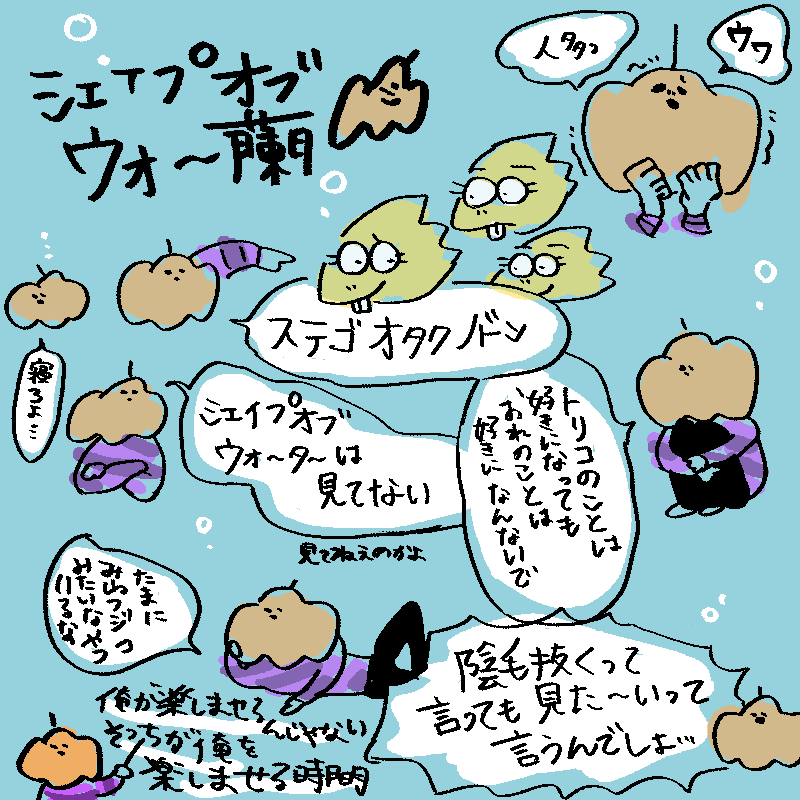 シェイプオブ
ウォ〜蘭
人タタッ
ウワ
ステゴオタクノドン
寝るよ…
シェイプオブ
ウォ〜タ〜は
見てない
見てねえのかよ
トリコのことは
好きになっても
おれのことは
好きになんないで
たまに
みたいなやつ
いるな
陰毛抜くって
言っても見た〜いって
言うんでしょ
俺が楽しませるんじゃない
そっちが俺を
楽しませる時間